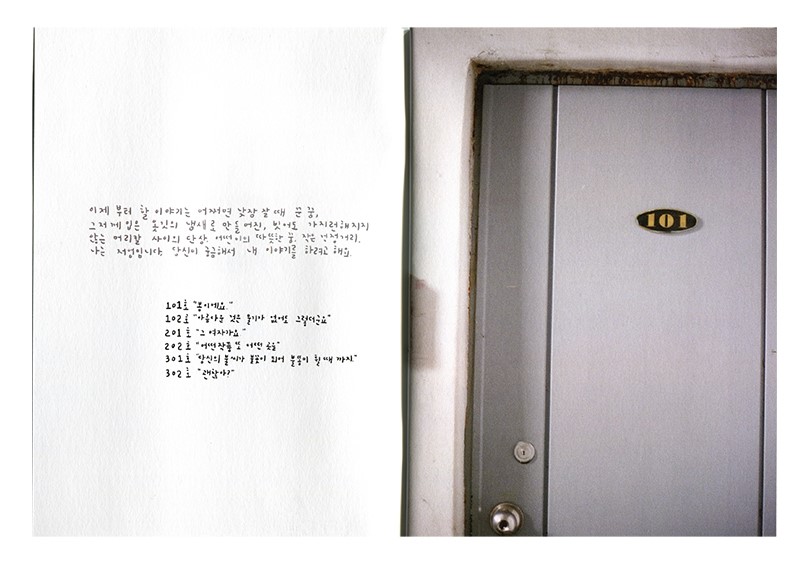 이제 부터 할 이야기는 어쩌면 낮잠 잘 때 꾼 꿈,
그저께 입은 옷깃의 냄새로 만들어진, 빗어도 가지런해지지
않은 머리칼 사이의 단상. 어떤이의 따뜻한 품. 작은 걱정거리.
나는 당신이 궁금해서 내 이야기를 하려고 해요.
101호 "봄이에요."
102호 "아름다운 것은 없어도 그렇더군요"
201호 "그 여자가요"
202호 "어떤 또 어떤
301호 "당신의 불씨가 불꽃이 되어 할 때 까지."
302호 "괜찮아?"
101